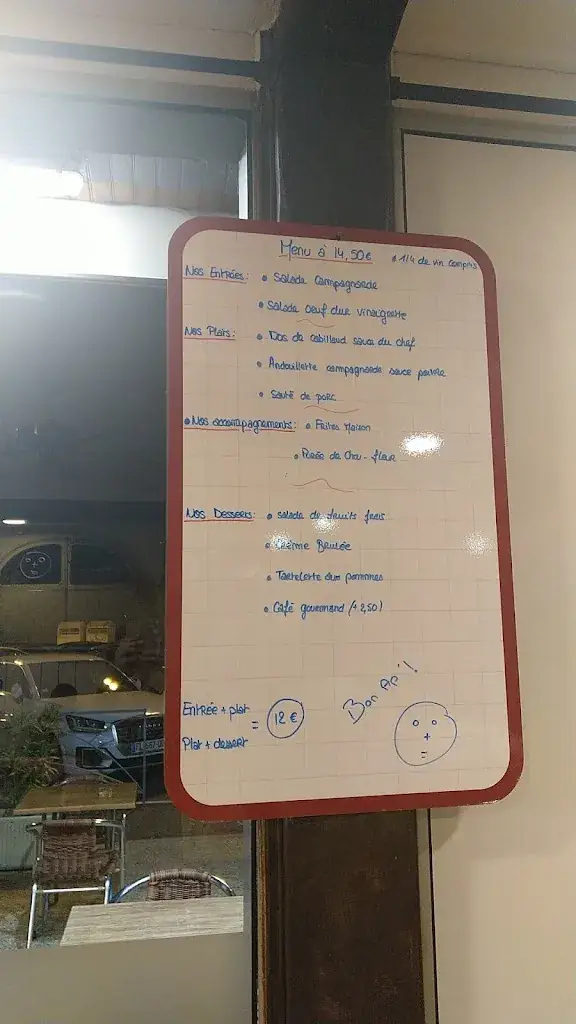 Menu à 14,50€ • 1/4 de vin compris
Nos Entrées: • Salade Campagnarde
• Salade oeuf dur vinaigrette
Nos Plats: • Dos de cabillaud sauce du chef
• Andouillette campagnarde sauce poivre
• Sauté de porc
• Nos accompagnements: • Frites Maison
• Purée de Chou-fleur
Nos Desserts: • Salade de fruits frais
• Crème Brulée
• Tartelette aux pommes
• Café gourmand (+2,50)
Entrée + plat
= 12 €
Plat + dessert
Bon Ap'!